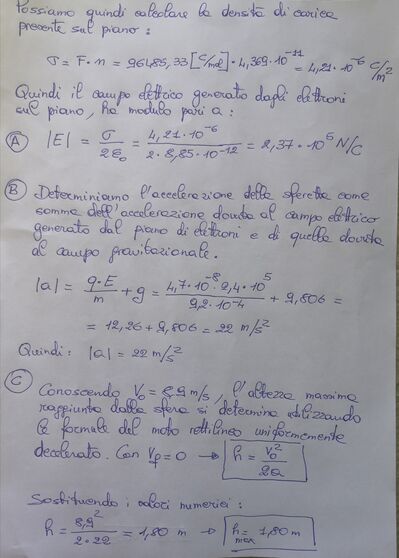 Possiamo quindi calcolare la densità di carica
presente sul piano:
σ = F·n = 96485,33 [C/mol] · 4,369·10⁻¹¹ = 4,21·10⁻⁶ C/m²
Quindi il campo elettrico generato dagli elettroni
sul piano, ha modulo pari a:
(A) |E| = σ/2ε₀ = 4,21·10⁻⁶/2·8,85·10⁻¹² = 2,37·10⁵ N/C
(B) Determiniamo l'accelerazione della sferetta come
somma dell'accelerazione dovuta al campo elettrico
generato dal piano di elettroni e di quella dovuta
al campo gravitazionale.
|a| = q·E/m + g = 4,7·10⁻⁸·2,4·10⁵/9,2·10⁻⁴ + 9,806 =
= 12,26 + 9,806 = 22 m/s²
Quindi: |a| = 22 m/s²
(C) Conoscendo V₀ = 8,9 m/s, l'altezza massima
raggiunta dalla sfera si determina utilizzando
le formule del moto rettilineo uniformemente
decelerato. Con Vf = 0 → h = V₀²/2a
Sostituendo i valori numerici:
h = 8,9²/2·22 = 1,80 m → hmax = 1,80 m